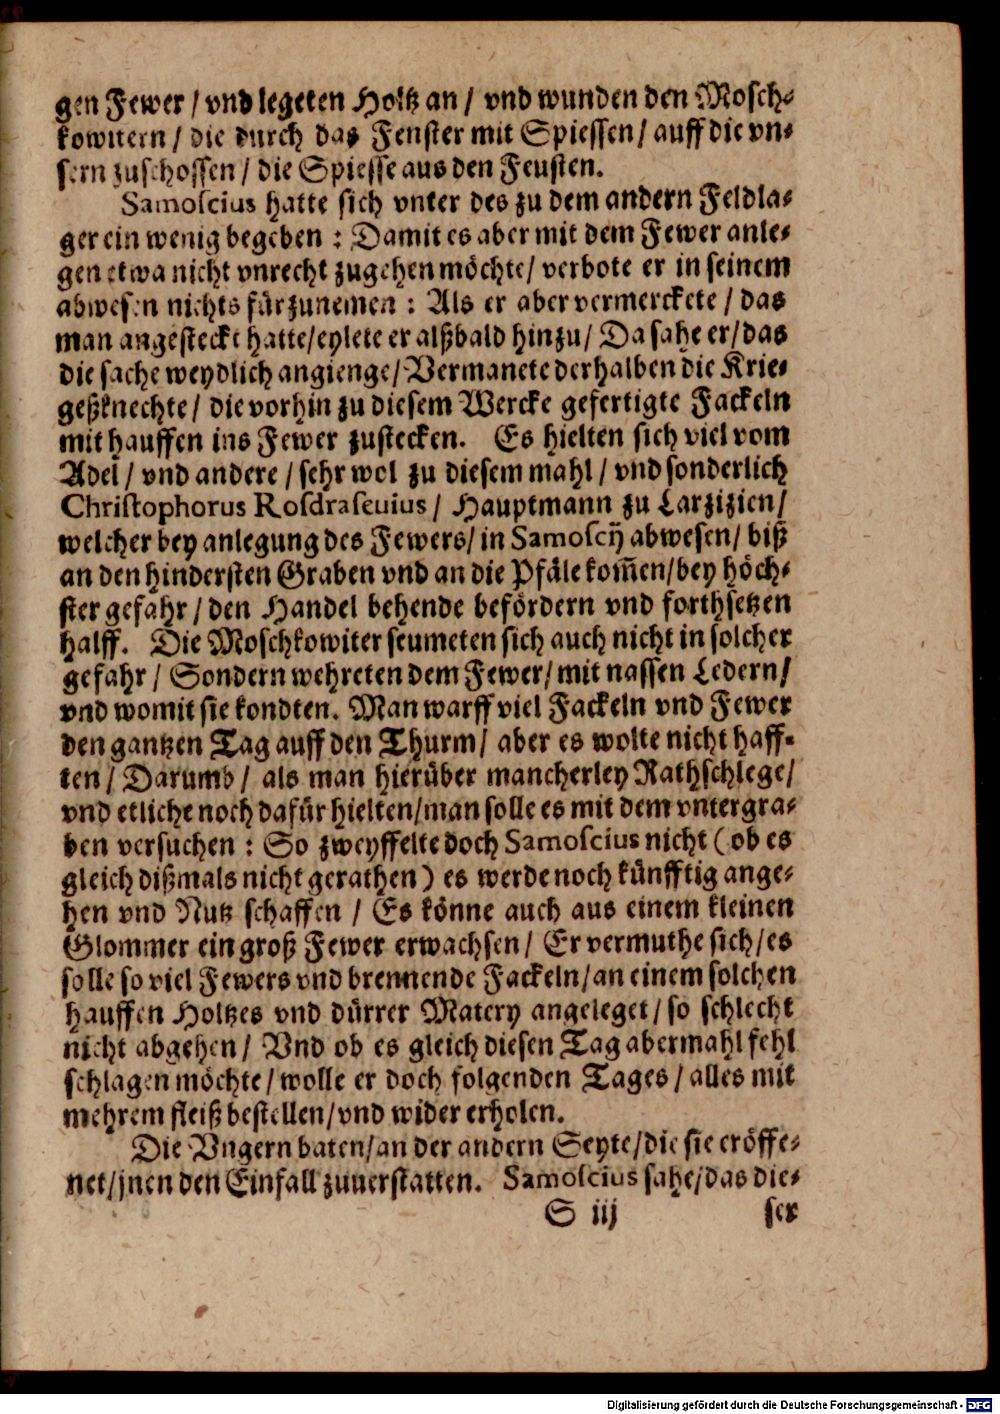 gen Fewer / vnd legeten Holtz an / vnd wunden den Mosch-
kowitern / die durch das Fenster mit Spiessen / auff die vn-
sern zuschossen / die Spiesse aus den Feusten.
Samoscius hatte sich vnter des zu dem andern Feldla-
ger ein wenig begeben : Damit es aber mit dem Fewer anle-
gen etwa nicht vnrecht zugehen möchte / verbote er in seinem
abwesen nichts fürzunemen : Als er aber vermerckete / das
man angesteckt hatte / eylete er alßbald hinzu / Da sahe er / das
die sache weydlich angienge / Vermanete derhalben die Krie-
geßknechte / die vorhin zu diesem Wercke gefertigte Fackeln
mit hauffen ins Fewer zustecken. Es hielten sich viel vom
Adel / vnd andere / sehr wol zu diesem mahl / vnd sonderlich
Christophorus Rosdraseuius / Hauptmann zu Larzizien /
welcher bey anlegung des Fewers / in Samoscij abwesen / biß
an den hindersten Graben vnd an die Pfäle kom̃en / bey höch-
ster gefahr / den Handel behende befördern vnd forthsetzen
halff. Die Moschkowiter seumeten sich auch nicht in solcher
gefahr / Sondern wehreten dem Fewer / mit nassen Ledern /
vnd womit sie kondten. Man warff viel Fackeln vnd Fewer
den gantzen Tag auff den Thurm / aber es wolte nicht haff-
ten / Darumb / als man hierüber mancherley Rathschlege /
vnd etliche noch dafür hielten / man solle es mit dem vntergra-
ben versuchen : So zweyffelte doch Samoscius nicht ( ob es
gleich dißmals nicht gerathen ) es werde noch künfftig ange-
hen vnd Nutz schaffen / Es könne auch aus einem kleinen
Glommer ein groß Fewer erwachsen / Er vermuthe sich / es
solle so viel Fewers vnd brennende Fackeln / an einem solchen
hauffen Holtzes vnd dürrer Matery angeleget / so schlecht
nicht abgehen / Vnd ob es gleich diesen Tag abermahl fehl
schlagen möchte / wolle er doch folgenden Tages / alles mit
mehrem fleiß bestellen / vnd wider erholen.
Die Vngern baten / an der andern Seyte / die sie eröffe-
net / jnen den Einfall zuuerstatten. Samoscius sahe / das die-
S iij ser
Digitalisierung gefördert durch die Deutsche Forschungsgemeinschaft - DFG